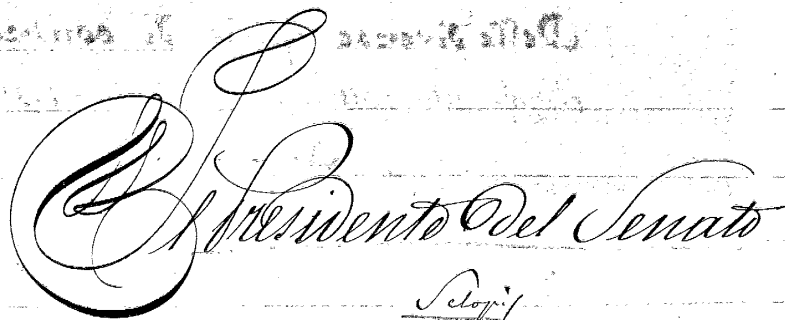 Il Presidente del Senato
Sclopis